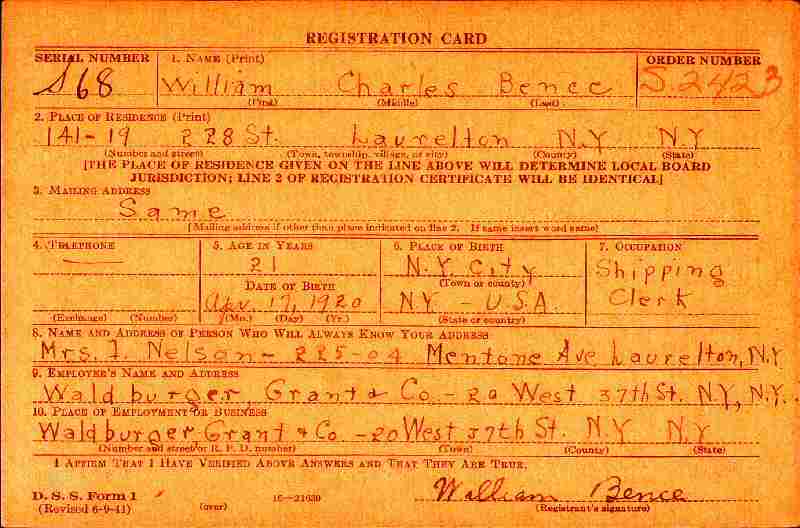 REGISTRATION CARD
SERIAL NUMBER 1. NAME (Print) ORDER NUMBER
S68 William Charles Bence S2423
(First) (Middle) (Last)
2. PLACE OF RESIDENCE (Print)
141-19 228 St. Laurelton N.Y N.Y
(Number and street) (Town, township, village, or city) (County) (State)
[THE PLACE OF RESIDENCE GIVEN ON THE LINE ABOVE WILL DETERMINE LOCAL BOARD
JURISDICTION; LINE 2 OF REGISTRATION CERTIFICATE WILL BE IDENTICAL]
3. MAILING ADDRESS
Same
[Mailing address if other than place indicated on line 2. If same insert word same]
4. TELEPHONE 5. AGE IN YEARS 6. PLACE OF BIRTH 7. OCCUPATION
— 21 N.Y. City Shipping
DATE OF BIRTH (Town or county)
Apr. 17, 1920 N.Y. - U.S.A. Clerk
(Exchange) (Number) (Mo.) (Day) (Yr.) (State or country)
8. NAME AND ADDRESS OF PERSON WHO WILL ALWAYS KNOW YOUR ADDRESS
Mrs. I. Nelson - 225-04 Mentone Ave Laurelton, N.Y
9. EMPLOYER'S NAME AND ADDRESS
Waldburger, Grant & Co - 20 West 37th St. N.Y, N.Y.
10. PLACE OF EMPLOYMENT OR BUSINESS
Waldburger, Grant & Co - 20 West 37th St. N.Y N.Y
(Number and street or R. F. D. number) (Town) (County) (State)
I AFFIRM THAT I HAVE VERIFIED ABOVE ANSWERS AND THAT THEY ARE TRUE.
D. S. S. Form 1 William Bence
(Revised 6-9-41) (over) 16—21630 (Registrant's signature)